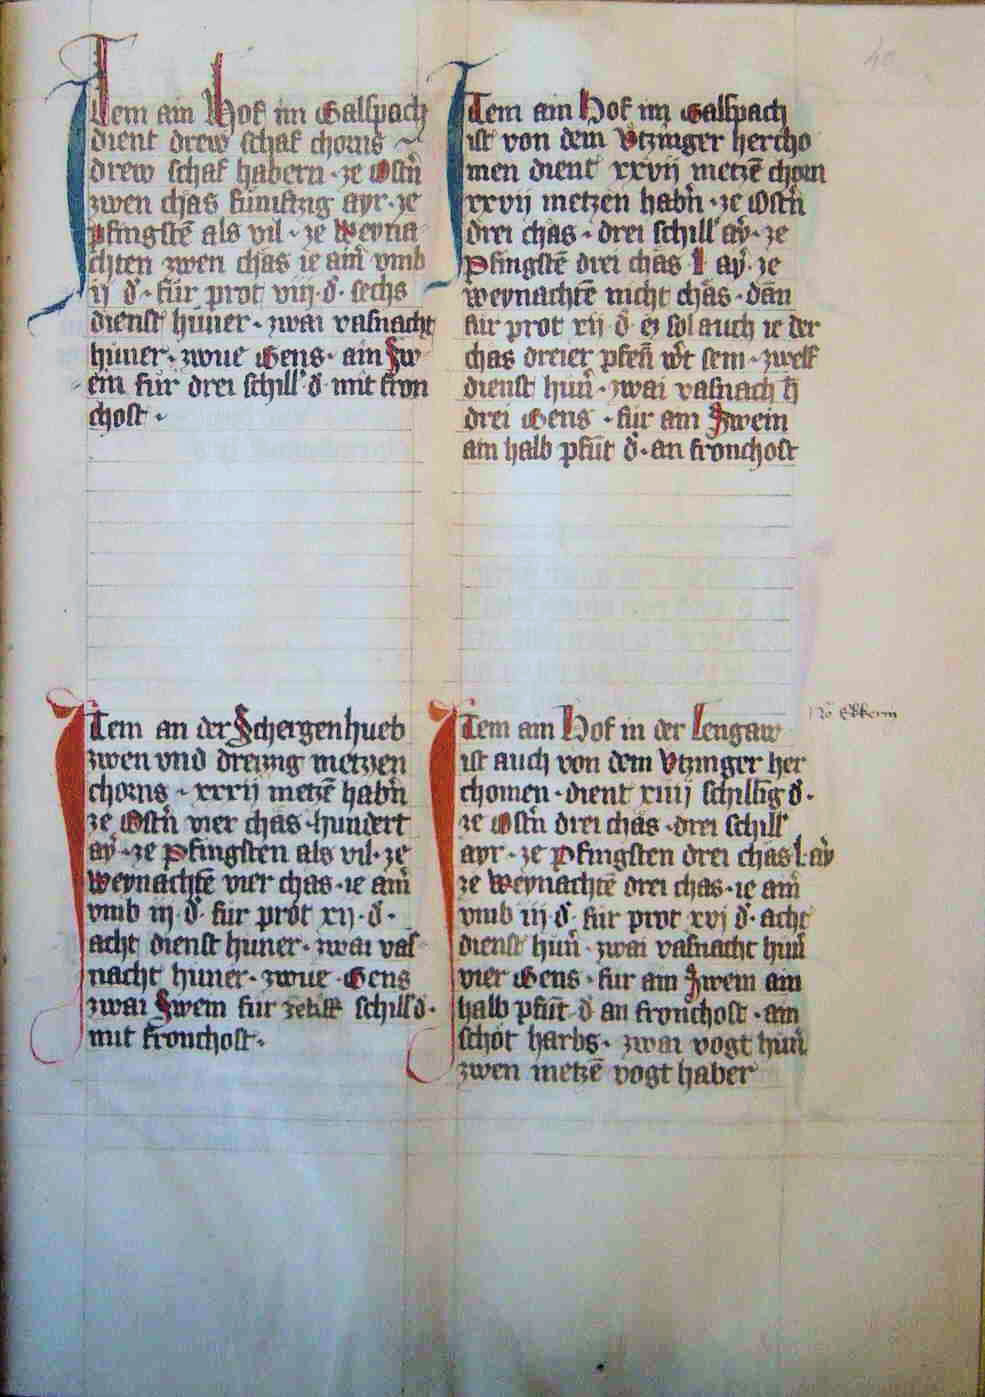 Item ain Hof im Galspach
dient drew schaf chorns
drew schaf habern · ze Ostn̄
zwen chäs fumftzig ayr · ze
pfingstē als vil · ze Weyna
chten zwen chäs ie ain̄ vmb
ij d̶ · für prot viij · d̶ · sechs
dienst hüner · zwai vasnacht
hüner · zwue Gens · ain Sw
ein für drei schill d̶ · mit fron
chost ·
Item ain Hof im Galspach
ist von dem Vtzinger hercho
men dient xxvij metzē chorn
xxvij metzen habn̄ · ze Ostn̄
drei chäs · drei schill ay̅ · ze
Pfingstē drei chäs · l · ay̅ · ze
weynachtē nicht chäs · dan
für prot xij · d̶ · ez sol auch ie der
chäs dreier pfen̄ w̅t sein · zwelf
dienst hun̄ · zwai vasnach h̄
drei Gens · für ain Swein
ain halb pfūt d̶ · an fronchost
Item an der Schergenhueb
zwen vnd dreizzig metzen
chorns · xxxij metzē habn̄
ze Ostn̄ vier chäs · hundert
ay̅ · ze Pfingsten als vil · ze
Weynachtē vier chäs · ie ain̄
vmb iij · d̶ · für prot xij · d̶ ·
acht dienst hüner · zwai vas
nacht hüner · zwue · Gens
zwai Swein für schill d̶ ·
mit fronchost ·
Item ain Hof in der Lengaw
ist auch von dem Vtzinger her
chomen · dient xiiij schillīg d̶ ·
ze Ostn̄ drei chäs · drei schill
ayr · ze Pfingsten drei chäs · l · ay̅
ze Weynachtē drei chäs · ie ain̄
vmb iij · d̶ · für prot xvj d̶ · acht
dienst hun̄ · zwai vasnacht hun̄
vier Gens · für ain Swein ain
halb pfūt d̶ an fronchost · ain
schöt harbs · zwai vogt hun̄
zwen metzē vogt haber